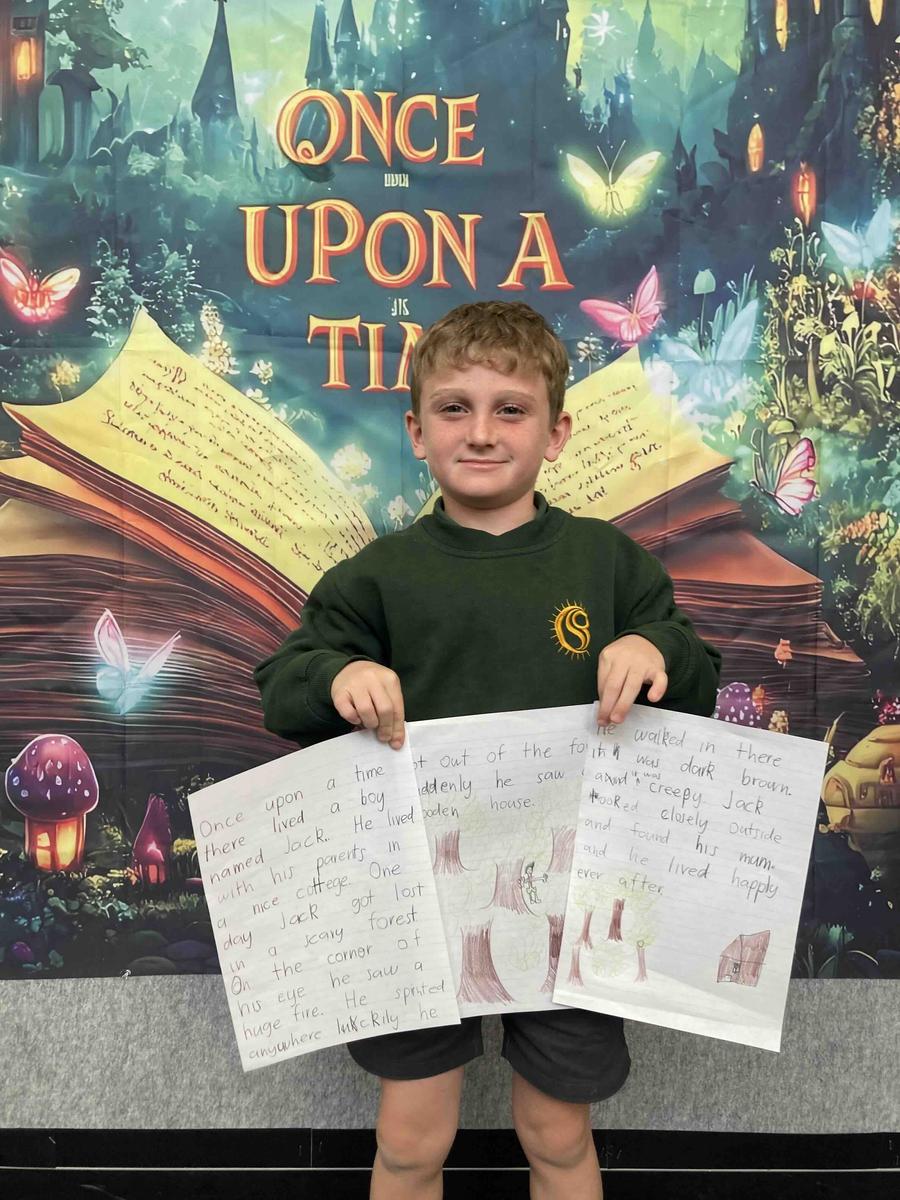 ONCE
UPON A
TIM
Once upon a time
there lived a boy
named Jack. He lived
with his parents in
a nice cottege. One
day Jack got lost
in a scary forest
On the cornor of
his eye he saw a
huge fire. He sprited
anywhere luckily he
ot out of the fo
ddenly he saw
ooden house.
he walked in there
it was dark brown.
and it was creepy. Jack
looked closely outside
and found his mum.
and he lived happly
ever after.